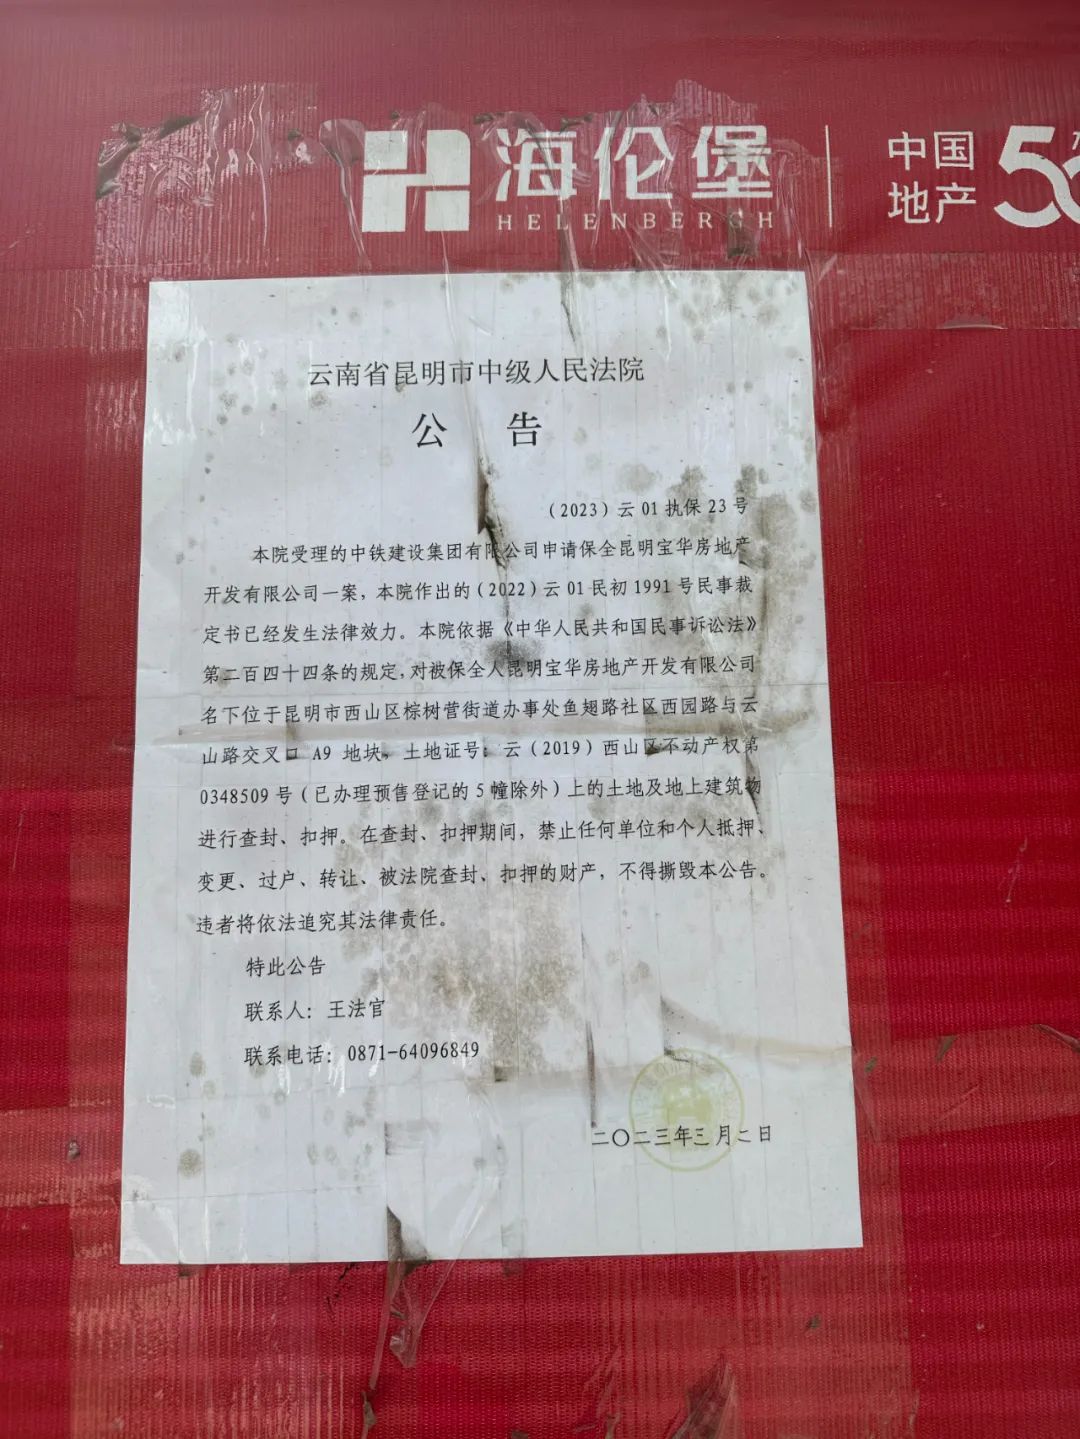 海伦堡
HELENBERGH
中国
地产
云南省昆明市中级人民法院
公 告
（2023）云 01 执保 23 号
本院受理的中铁建设集团有限公司申请保全昆明宝华房地产
开发有限公司一案，本院作出的（2022）云 01 民初 1991 号民事裁
定书已经发生法律效力。本院依据《中华人民共和国民事诉讼法》
第二百四十四条的规定，对被保全人昆明宝华房地产开发有限公司
名下位于昆明市西山区棕树营街道办事处鱼翅路社区西园路与云
山路交叉口 A9 地块，土地证号：云（2019）西山区不动产权第
0348509 号（已办理预售登记的 5 幢除外）上的土地及地上建筑物
进行查封、扣押。在查封、扣押期间，禁止任何单位和个人抵押、
变更、过户、转让、被法院查封、扣押的财产，不得撕毁本公告。
违者将依法追究其法律责任。
特此公告
联系人：王法官
联系电话：0871-64096849
二〇二三年三月二日